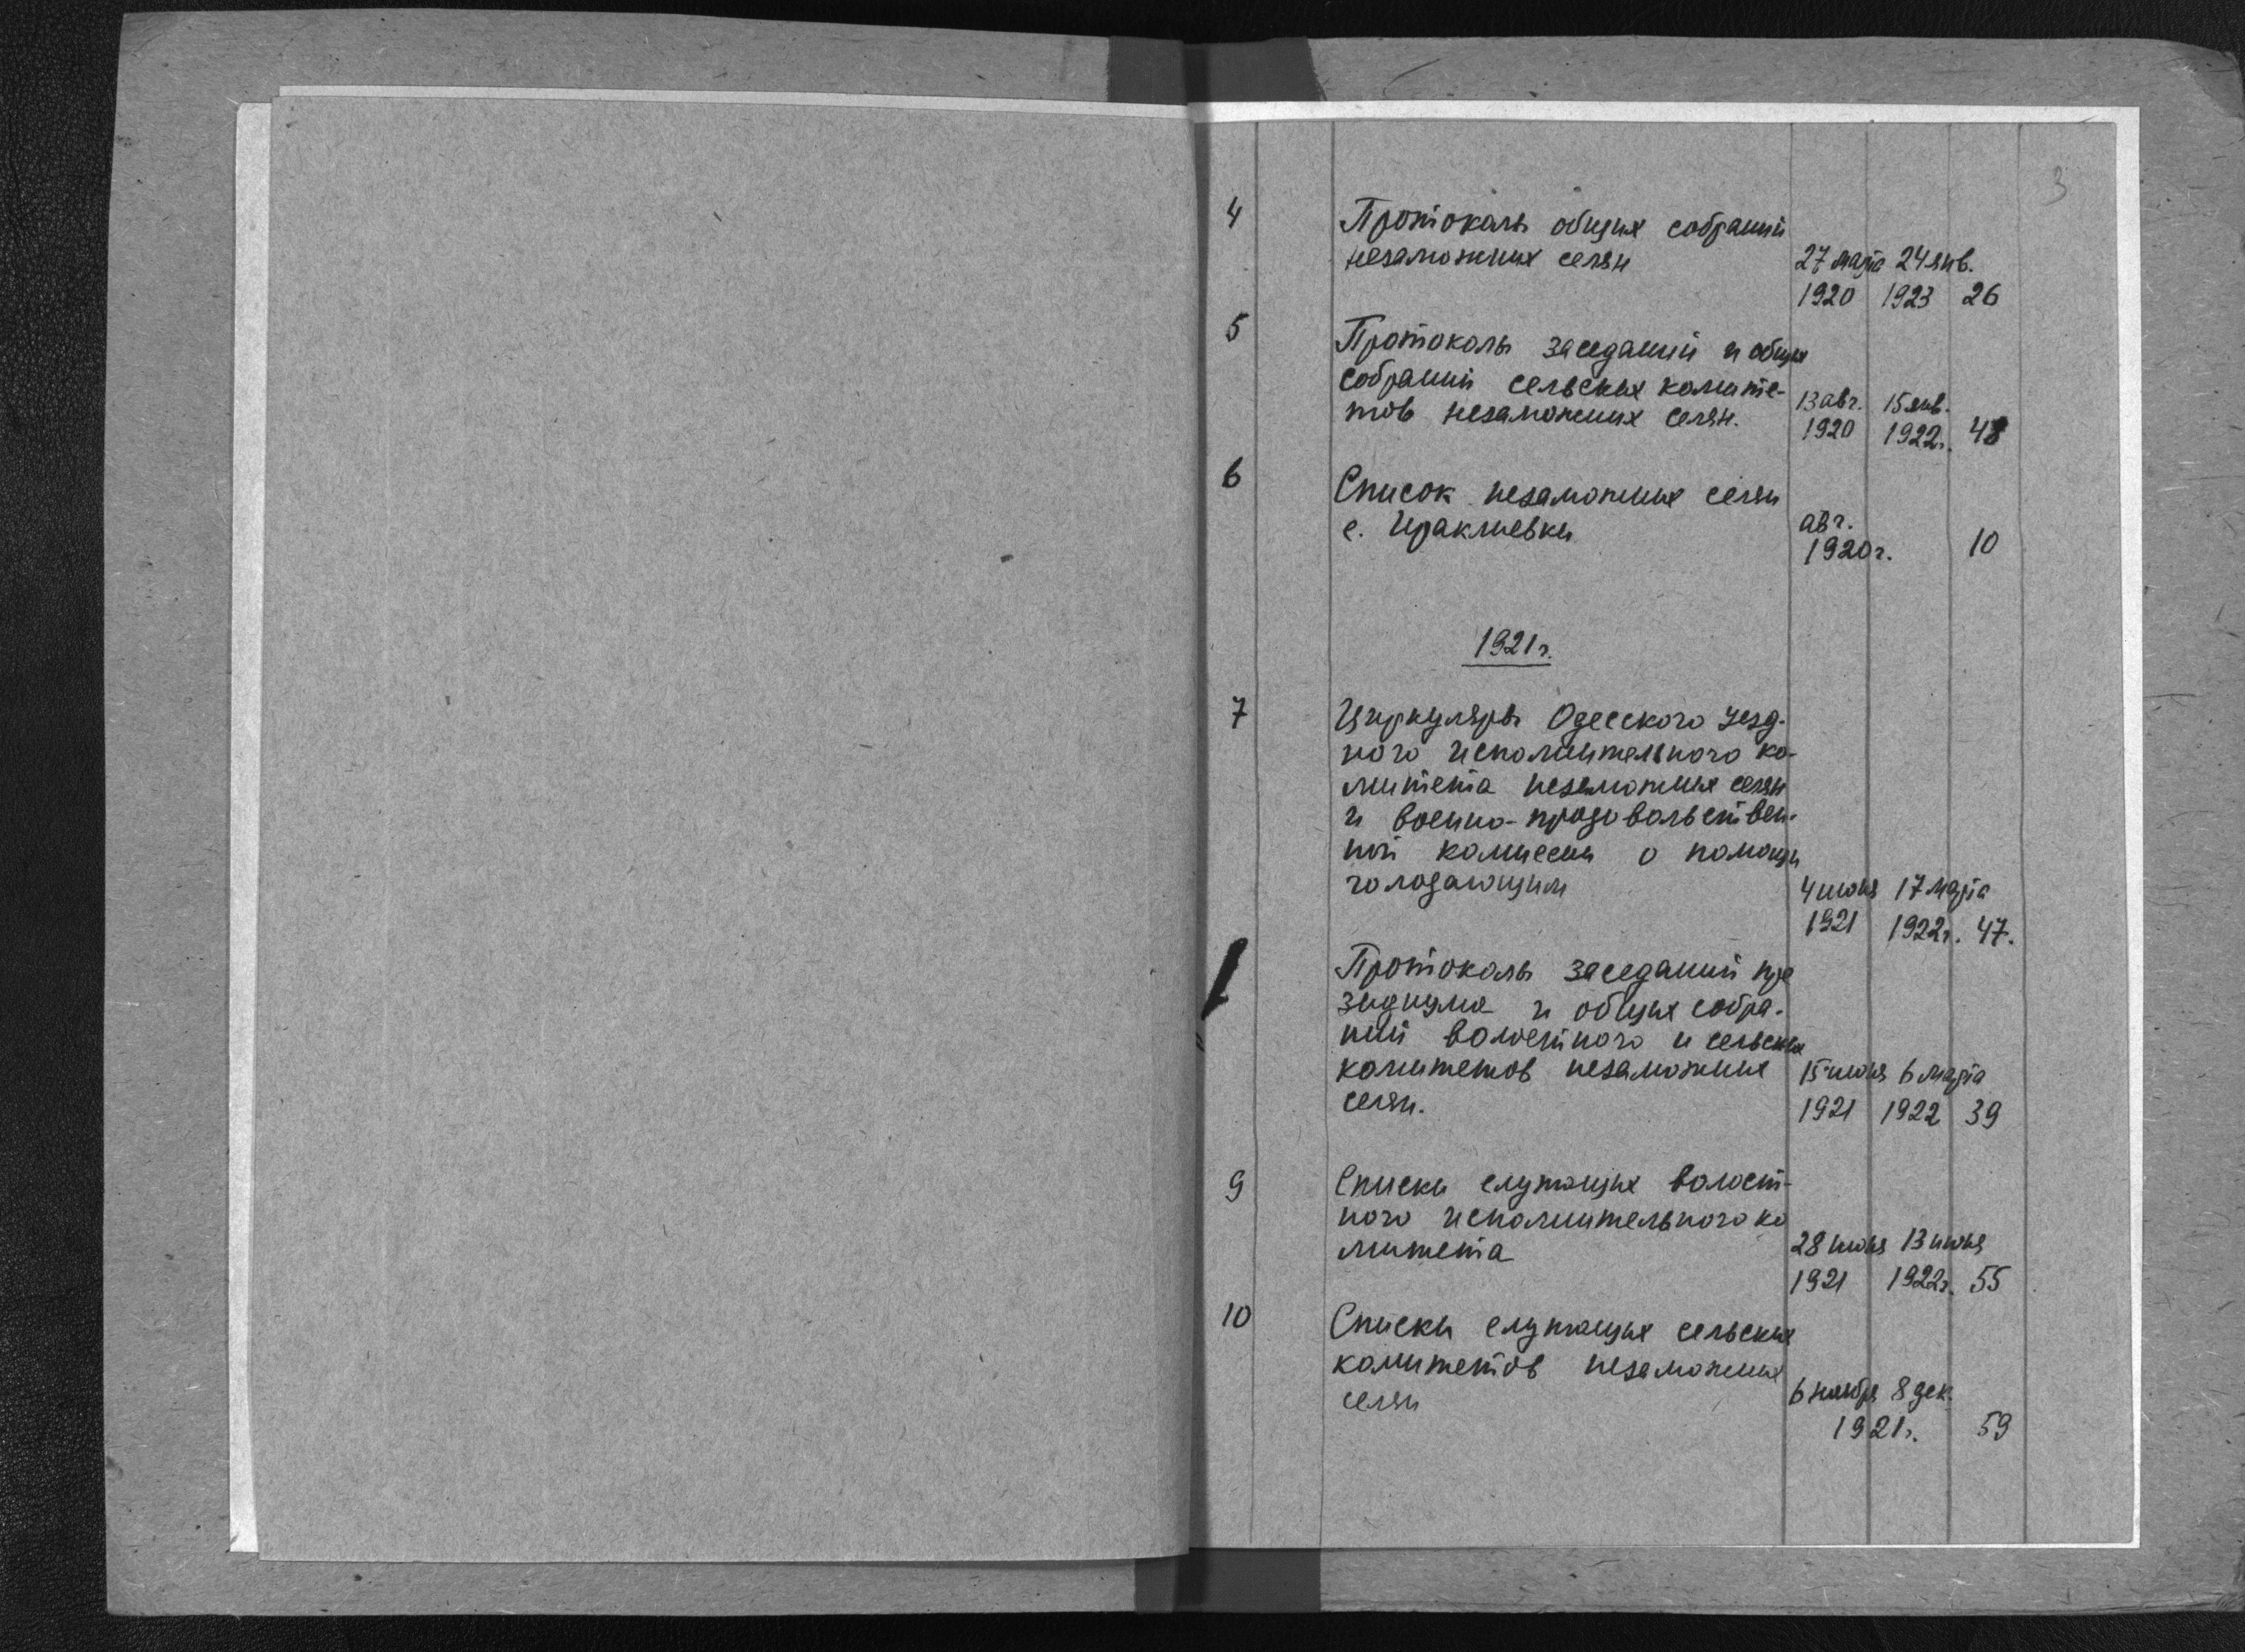 3
4 Протоколы общих собраний
незаможних селян 27 марта 24 янв.
1920 1923 26
5 Протоколы заседаний и общих
собраний сельских комите-
тов незаможних селян. 13 авг. 15 янв.
1920 1922г. 48
6 Список незаможних селян
с. Ираклиевки авг.
1920г. 10
1921г.
7 Циркуляры Одесского уезд-
ного исполнительного ко-
митета незаможних селян
и военно-продовольствен-
ной комиссии о помощи
голодающим 4 июня 17 марта
1921 1922г. 47.
Протоколы заседаний пре
зидиума и общих собра-
ний волостного и сельских
комитетов незаможних 15 июня 6 марта
селян. 1921 1922 39
9 Списки служащих волост-
ного исполнительного ко
митета 28 июня 13 июня
1921 1922г. 55
10 Списки служащих сельских
комитетов незаможних
селян 6 ноября 8 дек.
1921г. 59